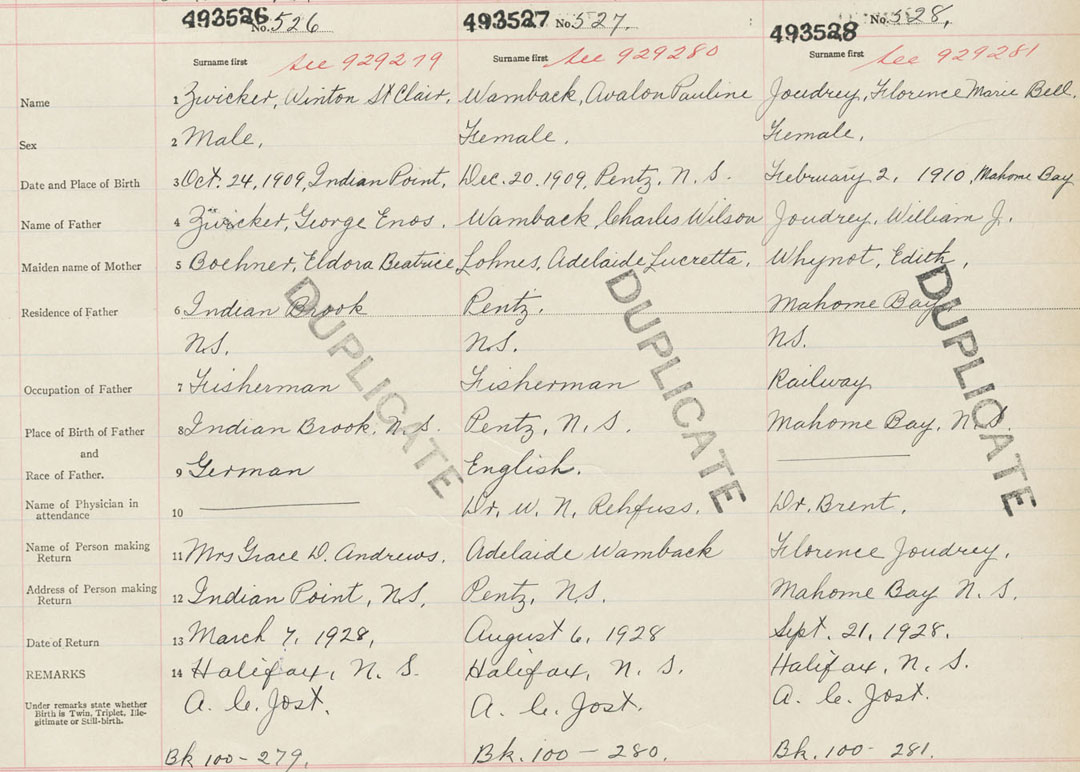 493526 No. 526 493527 No. 527. 493528 No. 528,
Surname first See 929279 Surname first See 929280 Surname first See 929281
Name 1 Zwicker, Winton St Clair, Wamback, Avalon Pauline Joudrey, Florence Marie Bell.
Sex 2 Male, Female, Female,
Date and Place of Birth 3 Oct. 24, 1909, Indian Point, Dec. 20. 1909, Pentz, N. S. February 2, 1910, Mahome Bay
Name of Father 4 Zwicker, George Enos. Wamback, Charles Wilson Joudrey, William J.
Maiden name of Mother 5 Boehner, Eldora Beatrice, Lohnes, Adelaide Lucretta, Whynot, Edith,
Residence of Father 6 Indian Brook Pentz, Mahome Bay
N.S. N.S. N.S.
Occupation of Father 7 Fisherman Fisherman Railway
Place of Birth of Father 8 Indian Brook, N. S. Pentz, N. S. Mahome Bay, N.S.
and
Race of Father. 9 German English.
Name of Physician in
attendance 10 Dr. W. N. Rehfuss. Dr. Brent,
Name of Person making
Return 11 Mrs Grace D. Andrews, Adelaide Wamback Florence Joudrey,
Address of Person making
Return 12 Indian Point, N.S, Pentz, N.S. Mahome Bay N. S.
Date of Return 13 March 7, 1928, August 6, 1928 Sept. 21, 1928.
REMARKS 14 Halifax, N. S. Halifax, N. S. Halifax, N. S.
Under remarks state whether
Birth is Twin, Triplet, Ille-
gitimate or Still-birth.
A. C. Jost. A. C. Jost. A. C. Jost.
Bk 100-279, Bk. 100-280, Bk. 100-281.
DUPLICATE DUPLICATE DUPLICATE